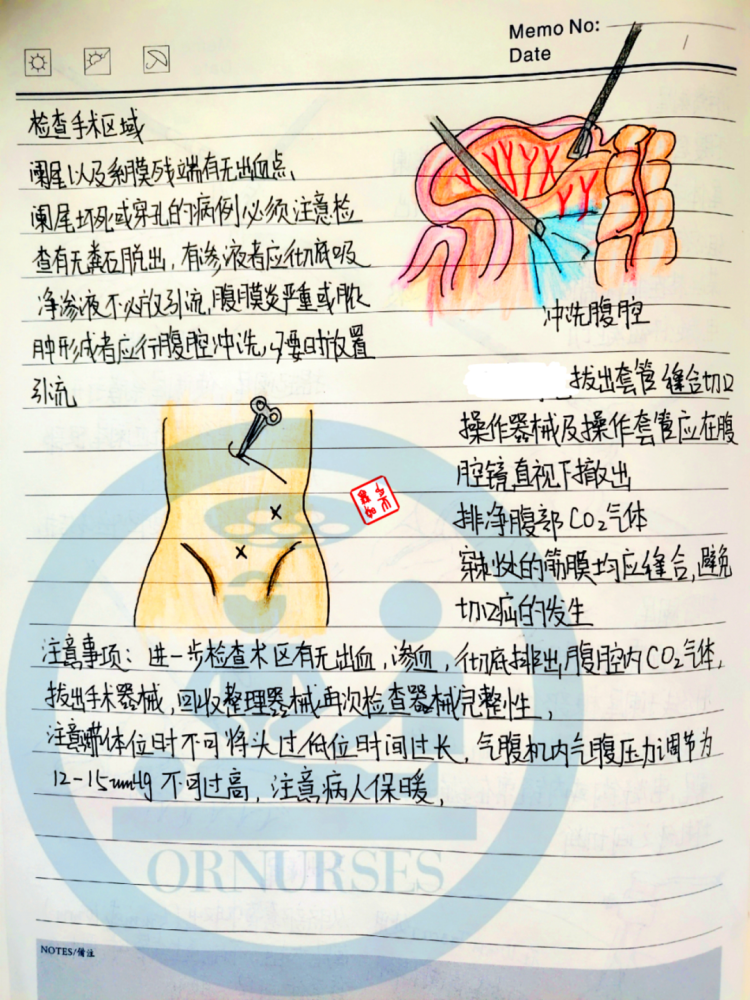 Memo No:
Date
检查手术区域
阑尾以及系膜残端有无出血点、
阑尾坏死或穿孔的病例必须注意检
查有无粪石脱出，有渗液者应彻底吸
净渗液不必放引流，腹膜炎严重或脓
肿形成者应行腹腔冲洗，必要时放置
引流
冲洗腹腔
拔出套管缝合切口
操作器械及操作套管应在腹
腔镜直视下撤出
排净腹部CO₂气体
穿刺处的筋膜均应缝合，避免
切口疝的发生
注意事项：进一步检查术区有无出血，渗血，彻底排出腹腔内CO₂气体，
拔出手术器械，回收整理器械再次检查器械完整性，
注意体位时不可将头过低位时间过长，气腹机内气腹压力调节为
12-15mmHg不可过高，注意病人保暖，
ORNURSES
NOTES/备注